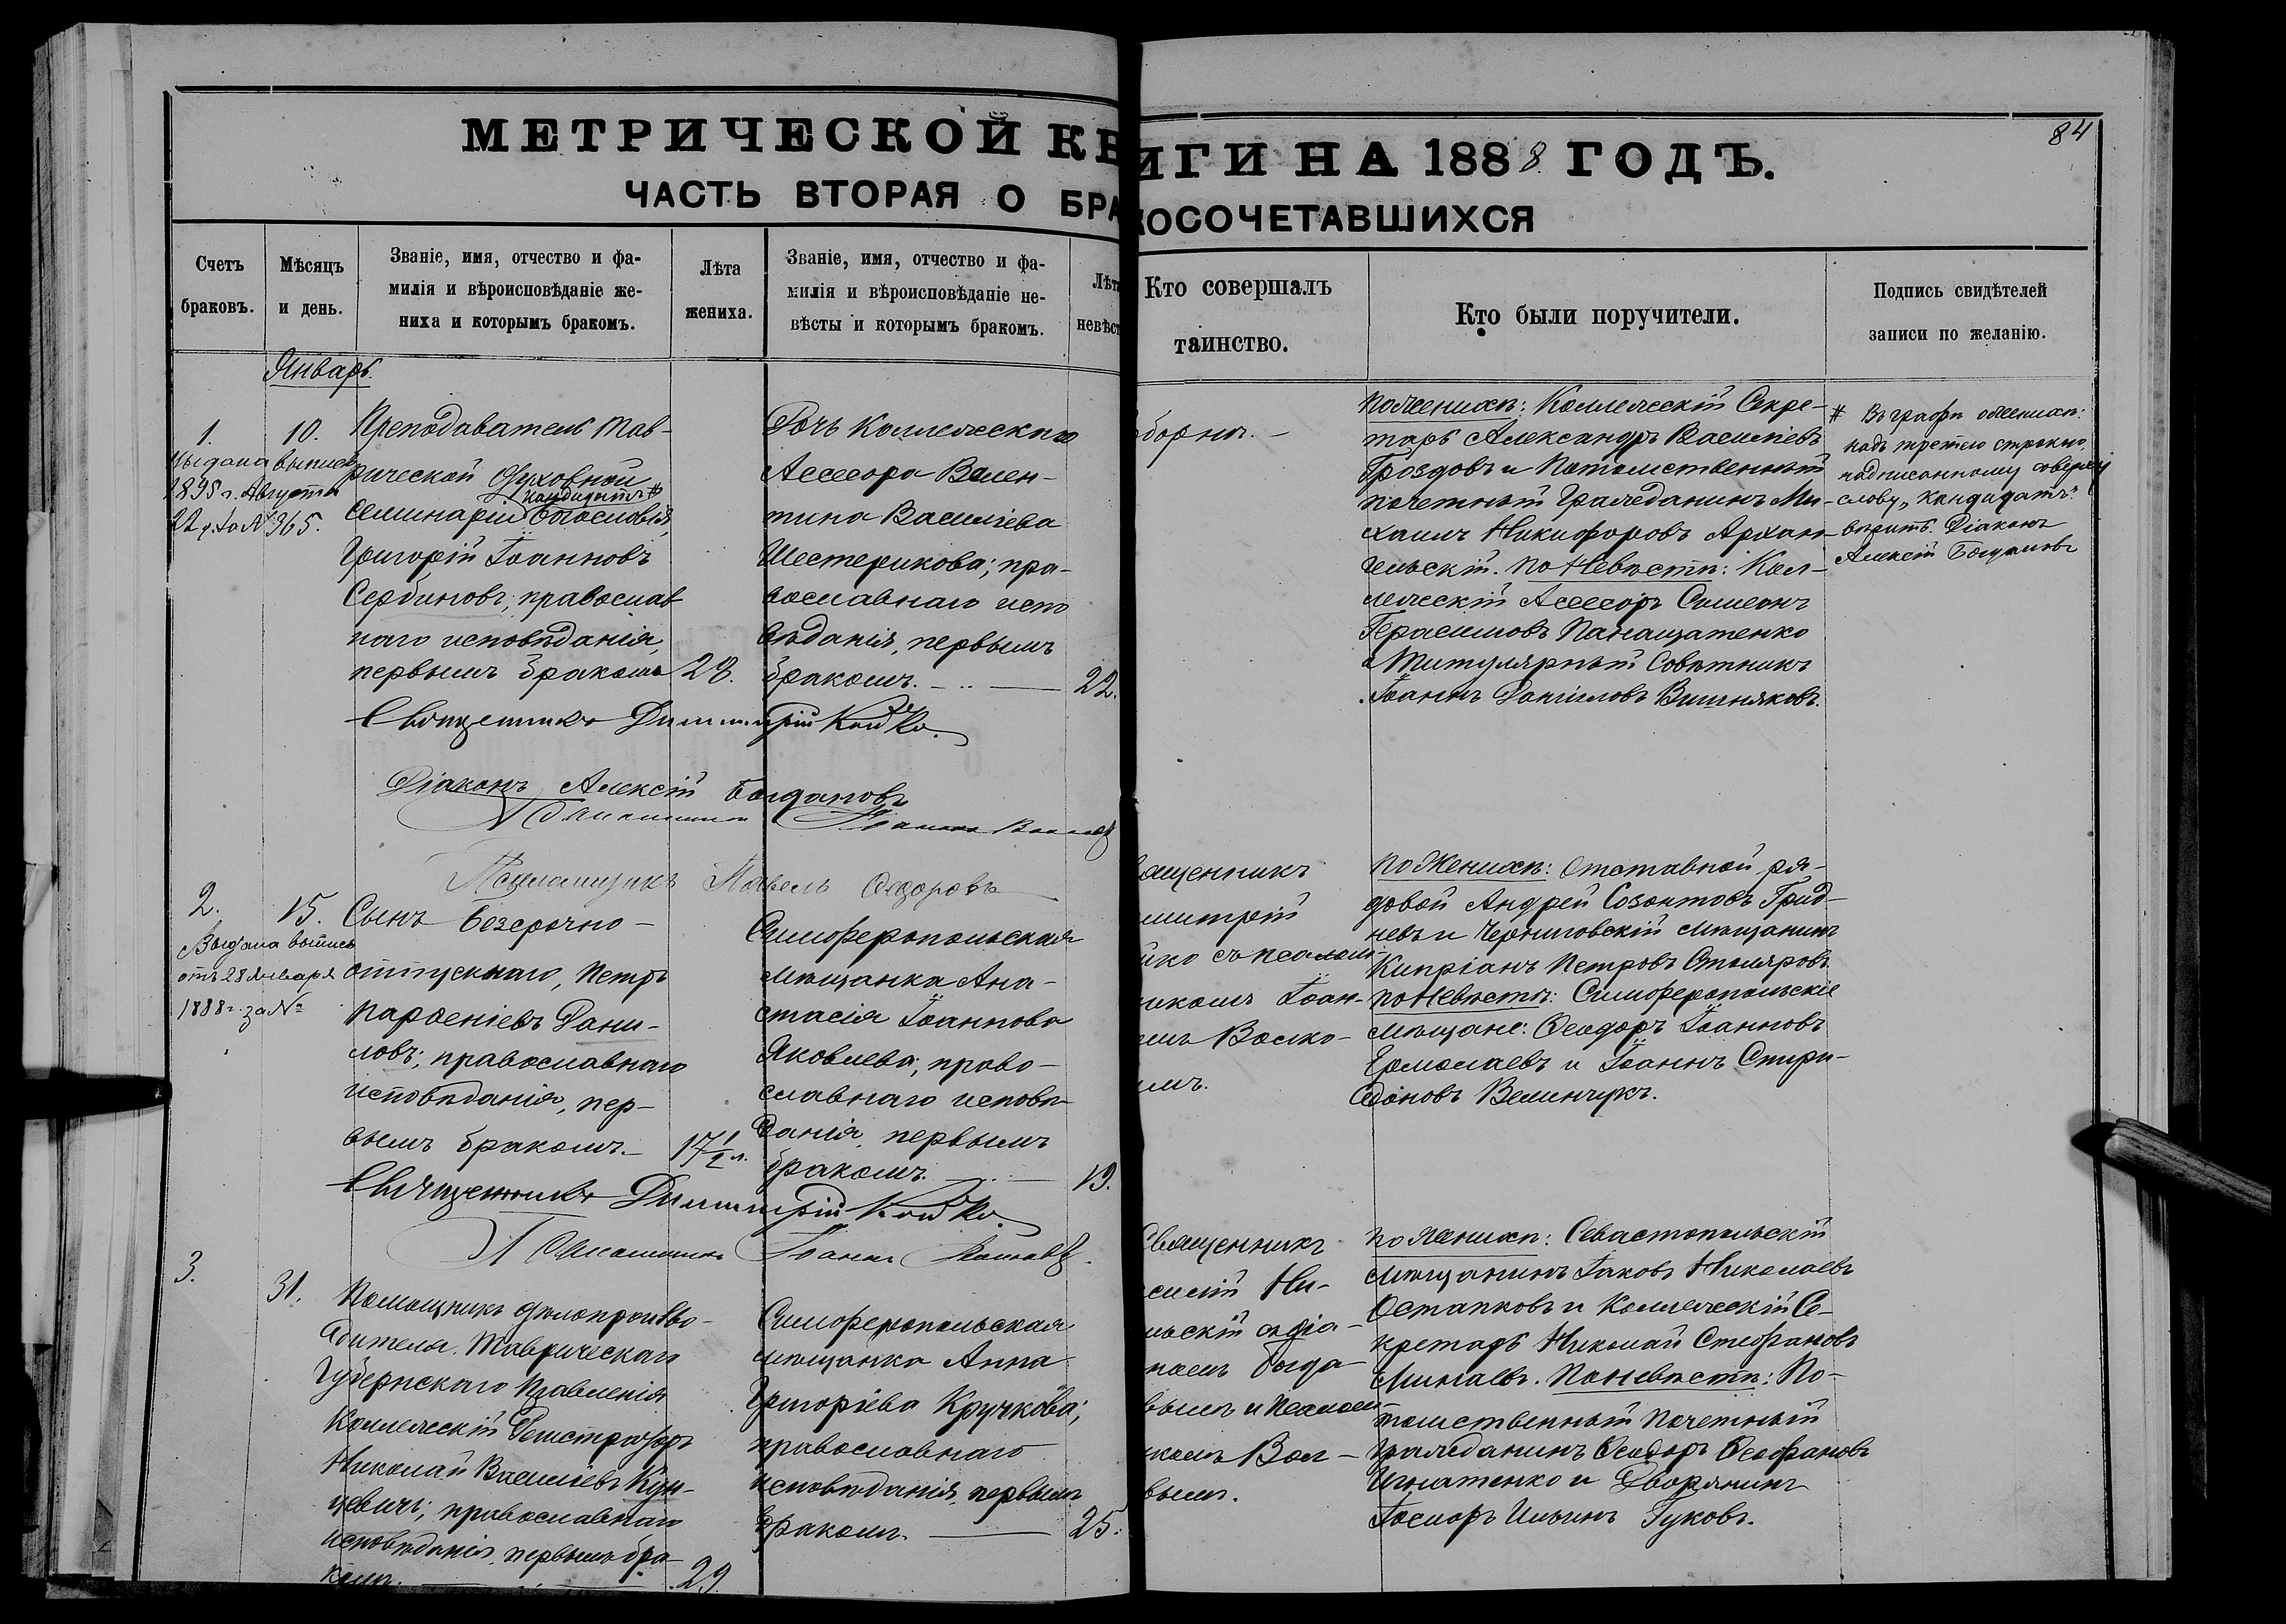 84
МЕТРИЧЕСКОЙ КН
ИГИ НА 1888 ГОДЪ.
ЧАСТЬ ВТОРАЯ О БРА
КОСОЧЕТАВШИХСЯ
Счетъ
браковъ.
Мѣсяцъ
и день.
Званіе, имя, отчество и фа-
милія и вѣроисповѣданіе же-
ниха и которымъ бракомъ.
Лѣта
жениха.
Званіе, имя, отчество и фа-
милія и вѣроисповѣданіе не-
вѣсты и которымъ бракомъ.
Лѣта
невѣст
Кто совершалъ
таинство.
Кто были поручители.
Подпись свидѣтелей
записи по желанію.
Январь.
1.
Выдана выпись
1898 г. Августа
22 д. за № 365.
10.
Преподаватель Тав-
рической Духовной
кандидатъ #
Семинаріи Богословія,
Григорій Іоанновъ
Сербиновъ; православ
наго исповѣданія,
первымъ бракомъ
28.
Дочь Коллежскаго
Ассесора Вален-
тина Василіева
Шестерикова; пра-
вославнаго испо
вѣданія, первымъ
бракомъ.
22.
Священникъ Димитрій Койко.
Діаконъ Алексій Богдановъ
Псаломщикъ Іоаннъ
Псаломщикъ Павелъ Ѳедоровъ
борнѣ.
По женихѣ: Коллежскій Секре-
тарь Александръ Василіевъ
Гроздовъ и Потомственный
почетный Гражданинъ Ми-
хаилъ Никифоровъ Архан-
гельскій. По Невѣстѣ: Кол-
лежскій Ассесоръ Симеонъ
Герасимовъ Панащатенко
и Титулярный Совѣтникъ
Іоаннъ Даніиловъ Вишняковъ.
# Въ графѣ о женихѣ:
надъ третьею строкою,
надписанному сверху
слову „кандидатъ"
вѣрить. Діаконъ
Алексій Богдановъ
2.
Выдана выпись
отъ 28 Января
1888 г. за №
15.
Сынъ безсрочно-
отпускнаго, Петръ
Парѳеніевъ Дани-
ловъ; православнаго
исповѣданія, пер-
вымъ бракомъ.
17 1/2 л.
Симферопольская
мѣщанка Ана-
стасія Іоаннова
Яковлева; право-
славнаго исповѣ-
данія, первымъ
бракомъ.
19.
Священникъ Димитрій Койко.
Псаломщикъ Іоаннъ
ященникъ
митрій
йко съ псалом
икомъ Іоан-
мъ Волко-
ымъ.
По Женихѣ: Отставной ря-
довой Андрей Созонтовъ Грид-
невъ и Черниговскій мѣщанинъ
Кипріанъ Петровъ Столяровъ.
По Невѣстѣ: Симферопольскіе
мѣщане: Ѳеодоръ Іоанновъ
Ермолаевъ и Іоаннъ Спири-
доновъ Велинчукъ.
3.
31.
Помощникъ дѣлопроизво-
дителя Таврическаго
Губернскаго Правленія
Коллежскій Регистраторъ
Николай Василіевъ Кун-
цевичъ; православнаго
исповѣданія, первымъ бра-
комъ.
29.
Симферопольская
мѣщанка Анна
Григоріева Кручкова;
православнаго
исповѣданія, первымъ
бракомъ.
25.
Священникъ
силій Ни-
льскій съ діа-
номъ Богда
вымъ и псалом
комъ Вол-
вымъ.
По женихѣ: Севастопольскій
мѣщанинъ Іаковъ Николаевъ
Остапковъ и Коллежскій Се-
кретарь Николай Стефановъ
Минаевъ. По невѣстѣ: По-
томственный почетный
гражданинъ Ѳеодоръ Ѳеофановъ
Игнатенко и Дворянинъ
Іосифъ Ильинъ Гуковъ.